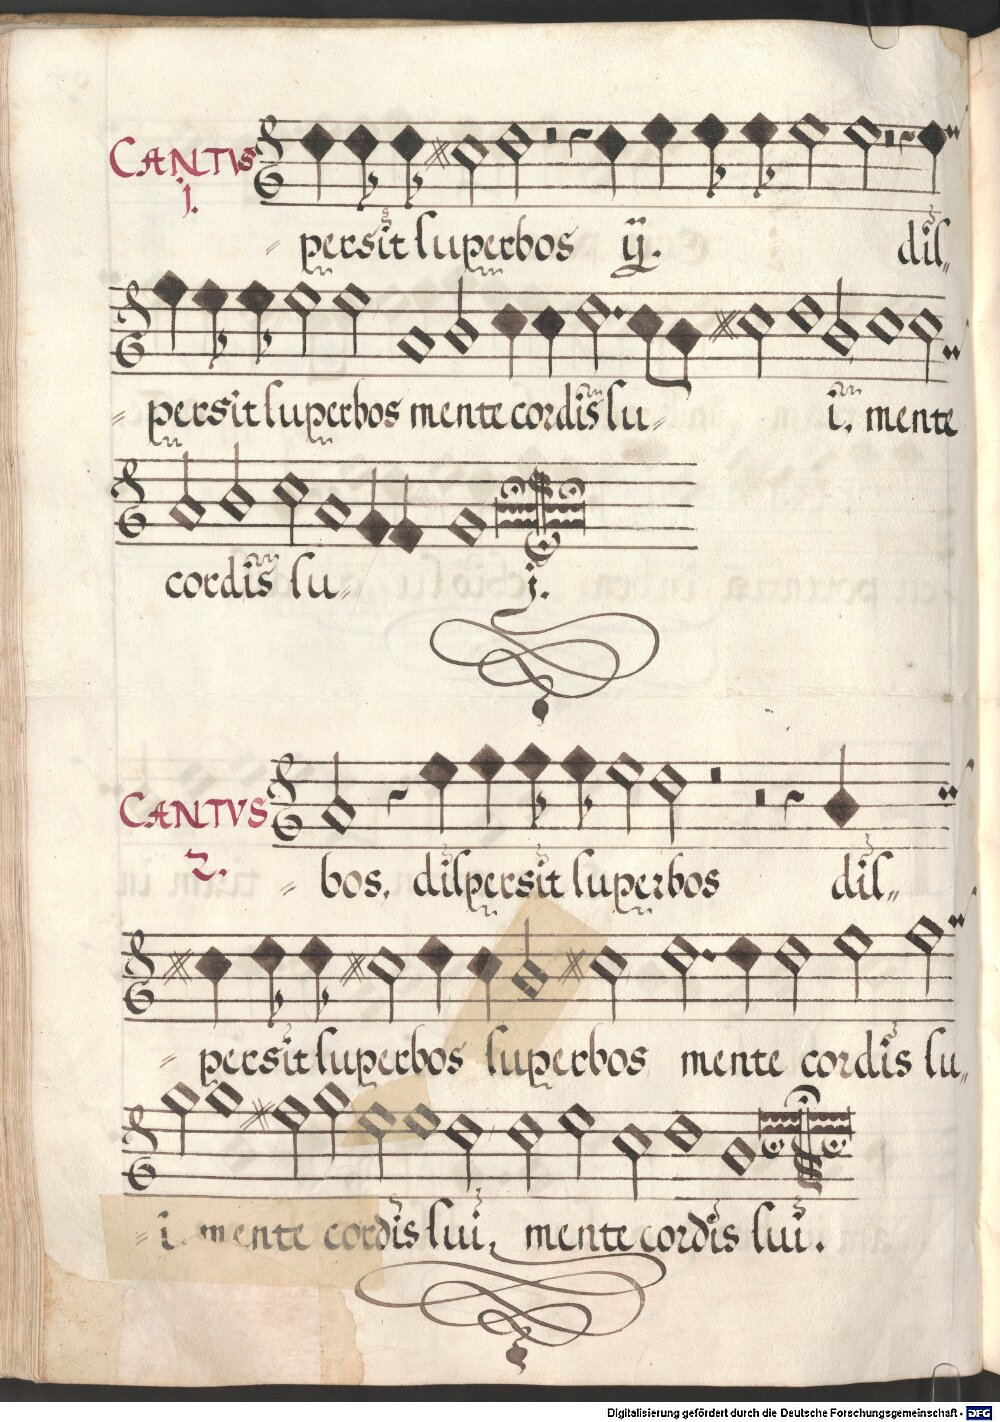 CANTVS
j.
persit superbos ij. dis=
=persit superbos mente cordis su= i, mente
cordis su= j.
CANTVS
2.
=bos, dispersit superbos dis=
=persit superbos superbos mente cordis su=
=i mente cordis sui, mente cordis sui.
Digitalisierung gefördert durch die Deutsche Forschungsgemeinschaft - DFG